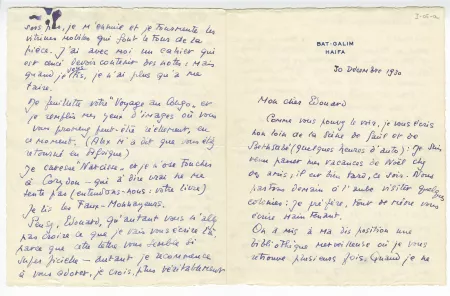 BAT-GALIM
HAIFA
30 Décembre 1930
Mon cher Edouard
Comme vous le voir, je vous écris
non loin de la de et de
Bethsabé (quelques heures d'auto): Je suis
venu passer mes vacances de Noël chez
des amis, il est bien tard, ce soir. Nous
partons demain à l'aube visiter quelques
colonies: je préfère, tout de même vous
écrire maintenant.
On a mis à ma disposition une
bibliothèque merveilleuse où je vous
retrouve plusieurs fois. Quand je ne
sors pas, je m'ennuie et je tourmente les
vitrines mobiles qui font le tour de la
pièce. J'ai avec moi un cahier qui
est censé devoir contenir des notes: Mais
quand je vous lis, je n'ai plus qu'à me
taire.
Je feuillette votre "Voyage au Congo" et
je remplis mes yeux d'images où vous
vous promenez peut-être réellement, en
ce moment. (Alix M'a dit que vous étiez
retourné en Afrique)
Je caresse "Narcisse" et je n'ose toucher
à Corydon - qui à dire vrai ne me
tente pas (entendons-nous: votre livre)
Je lis les Faux-Monnayeurs.
Edouard, qu'autant vous n'allez
pas croire ce que je vais vous écrire là
parce que cette lettre vous semble si
superficielle - autant je recommence
à vous adorer, je crois, plus véritablement